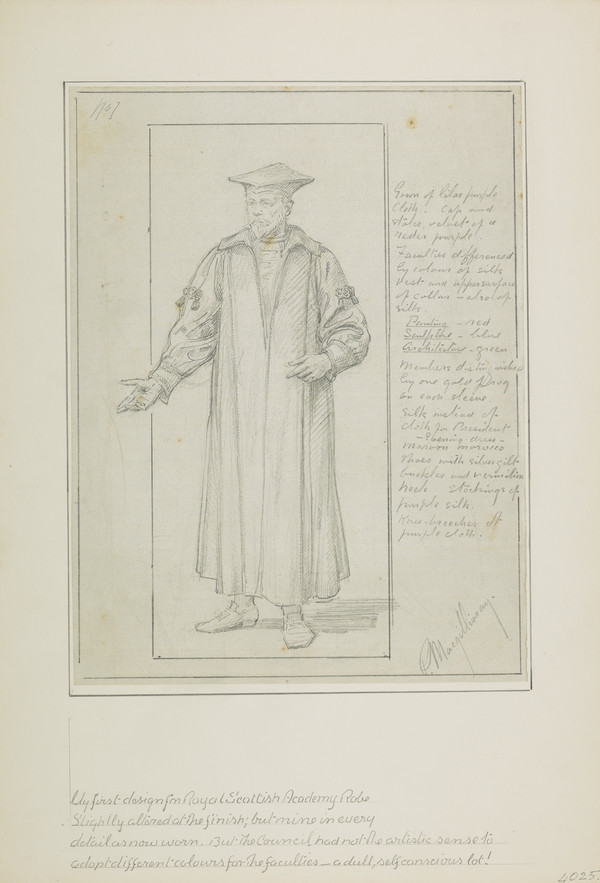 Gown of lilac purple
Cloth. Cap and
stole, velvet of a
redder purple.
Faculties differenced
by colour of silk
vest and upper surface
of collar – also of
silk.
Painting – red
Sculpture – blue
Architecture – green
Members distinguished
by one gold frog
on each sleeve
Silk instead of
cloth for President
– Evening dress –
Maroon morocco
shoes with silver gilt
buckles and vermilion
heels Stockings of
purple silk.
Knee-breeches of
purple cloth.
Macgillivray.
My first design for Royal Scottish Academy Robe
Slightly altered at the finish; but mine in every
detail as now worn. But the Council had not the artistic sense to
adopt different colours for the faculties – a dull, self conscious lot!
4025.